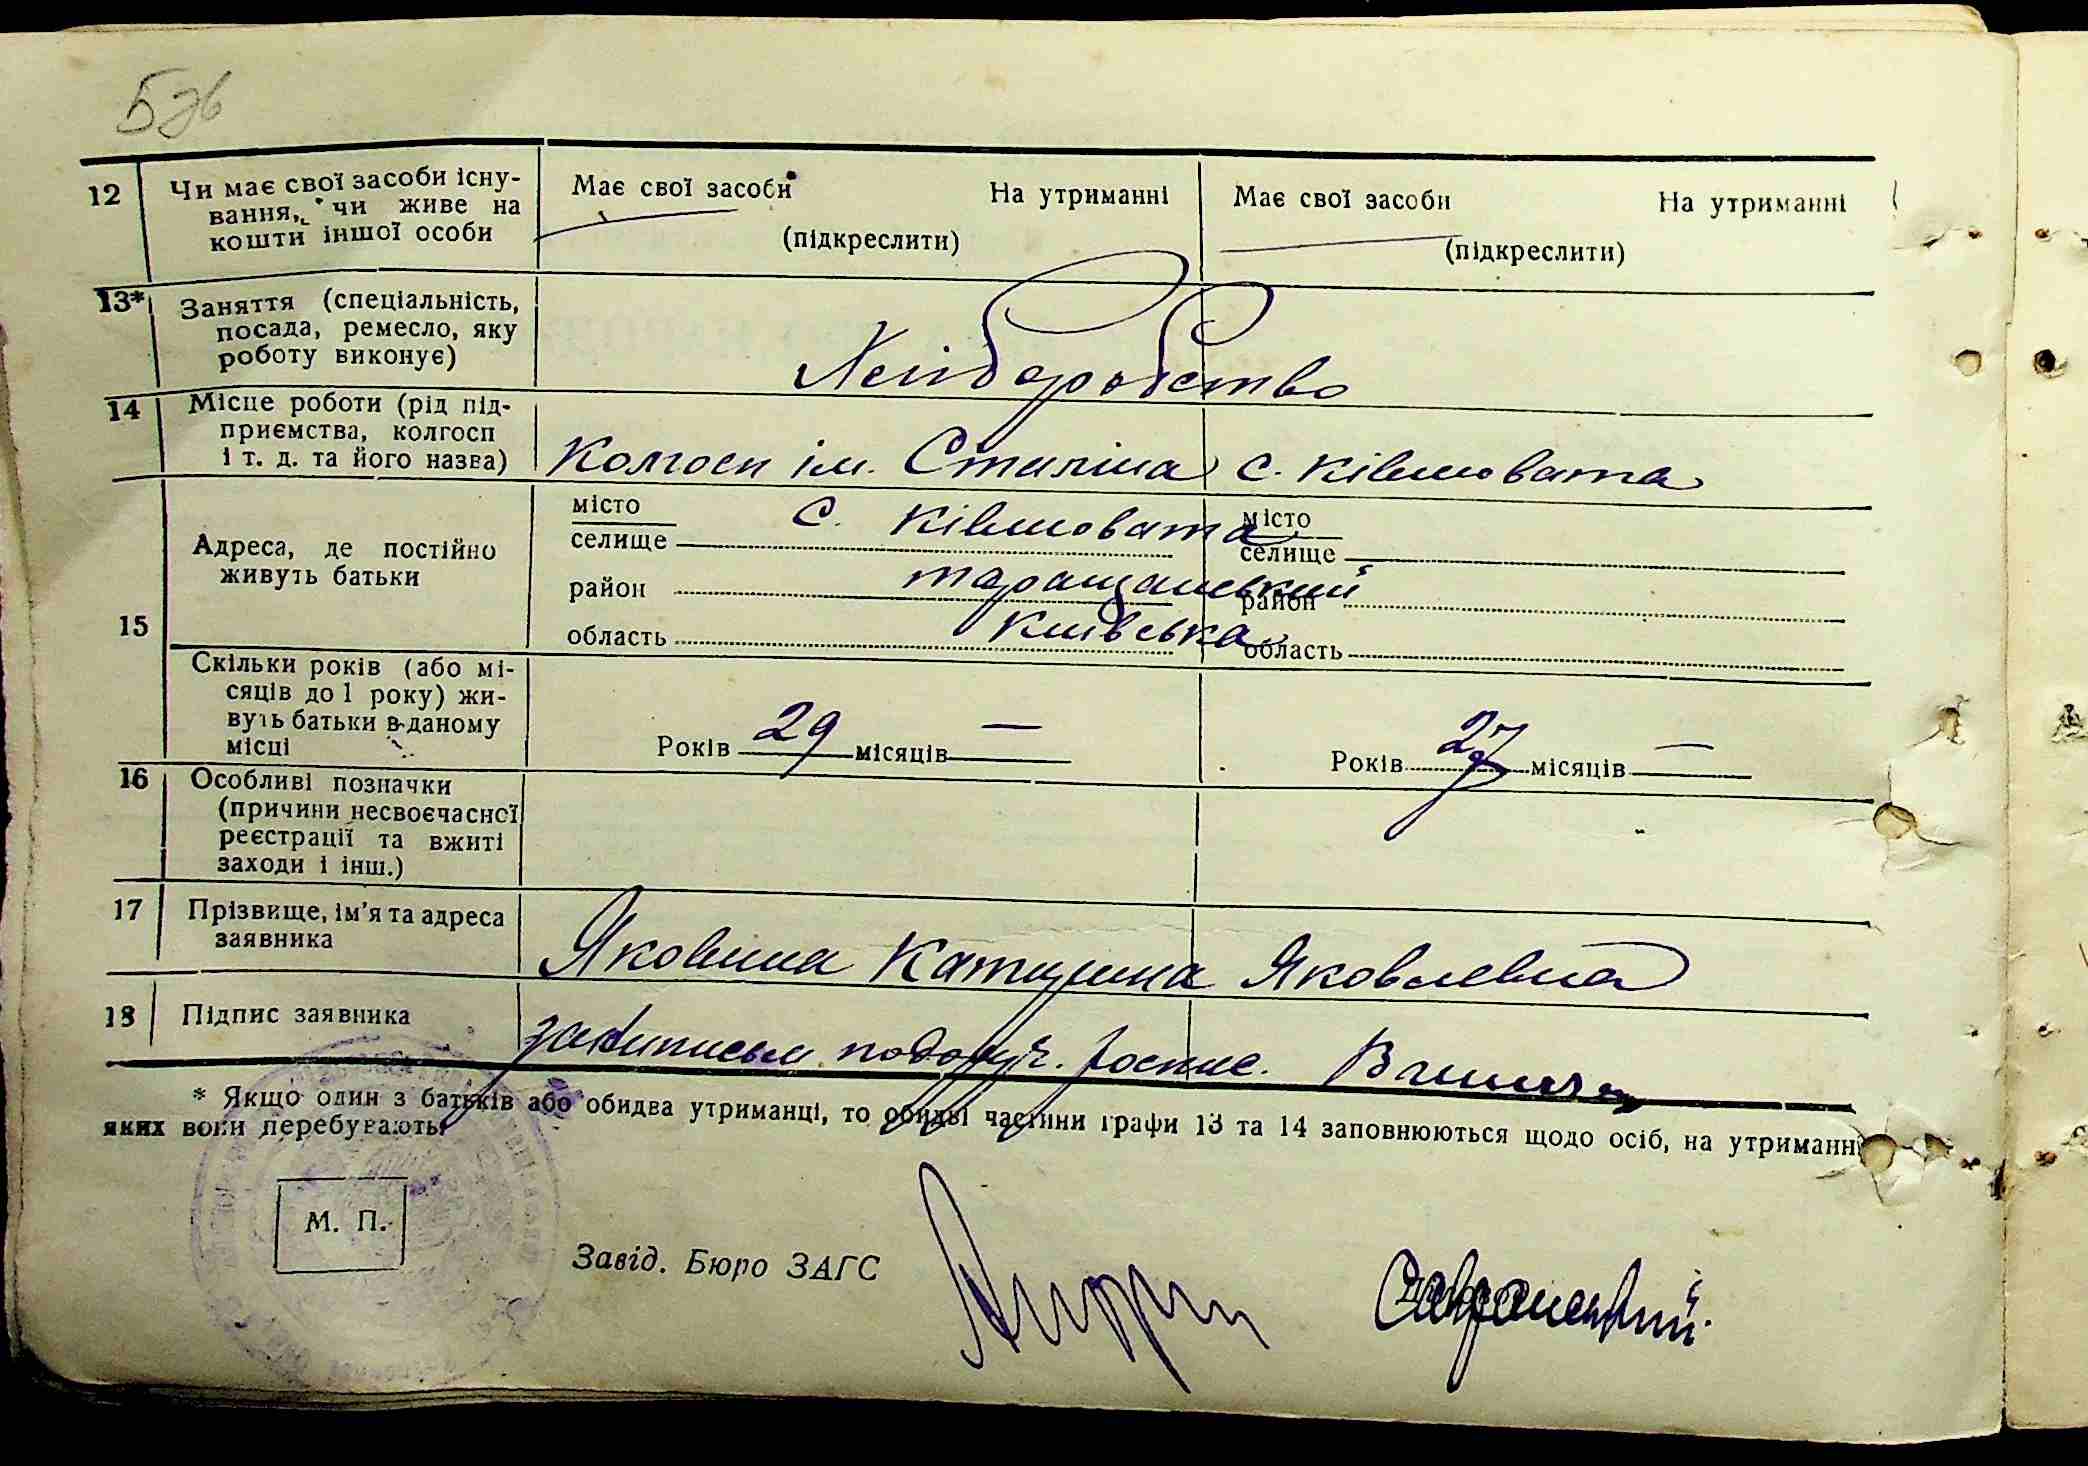 12 Чи має свої засоби існу-
вання, чи живе на
кошти іншої особи
Має свої засоби На утриманні
(підкреслити)
Має свої засоби На утриманні
(підкреслити)
13* Заняття (спеціальність,
посада, ремесло, яку
роботу виконує)
Хліборобство
14 Місце роботи (рід під-
приємства, колгосп
і т. д. та його назва)
Колгосп ім. Сталіна с. Ківшовата
15 Адреса, де постійно
живуть батьки
місто
селище с. Ківшовата
район таращанський
область київська
місто
селище
район
область
Скільки років (або мі-
сяців до 1 року) жи-
вуть батьки в даному
місці
Років 29 місяців —
Років 27 місяців —
16 Особливі позначки
(причини несвоєчасної
реєстрації та вжиті
заходи і інш.)
17 Прізвище, ім'я та адреса
заявника
Яковина Катерина Яковлевна
18 Підпис заявника
* Якщо один з батьків або обидва утриманці, то обидві частини графи 13 та 14 заповнюються щодо осіб, на утриманні
яких вони перебувають
М. П.
Завід. Бюро ЗАГС